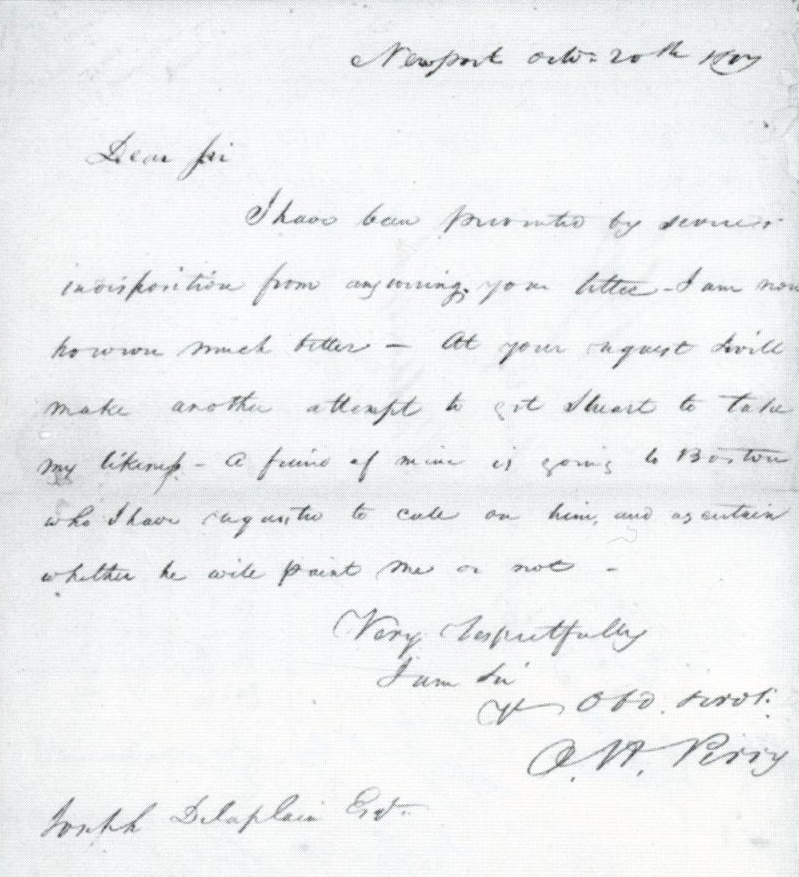 Newport Octo. 20th
Dear Sir
I have been prevented by severe
indisposition from answering your letter - I am now
however much better - At your request I will
make another attempt to get Stuart to take
my likeness - A friend of mine is going to Boston
who I have requested to call on him, and ascertain
whether he will paint me or not -
Very Respectfully
I am Sir
Yr Obd. Servt.
O. H. Perry
Joseph Delaplain Esqr.